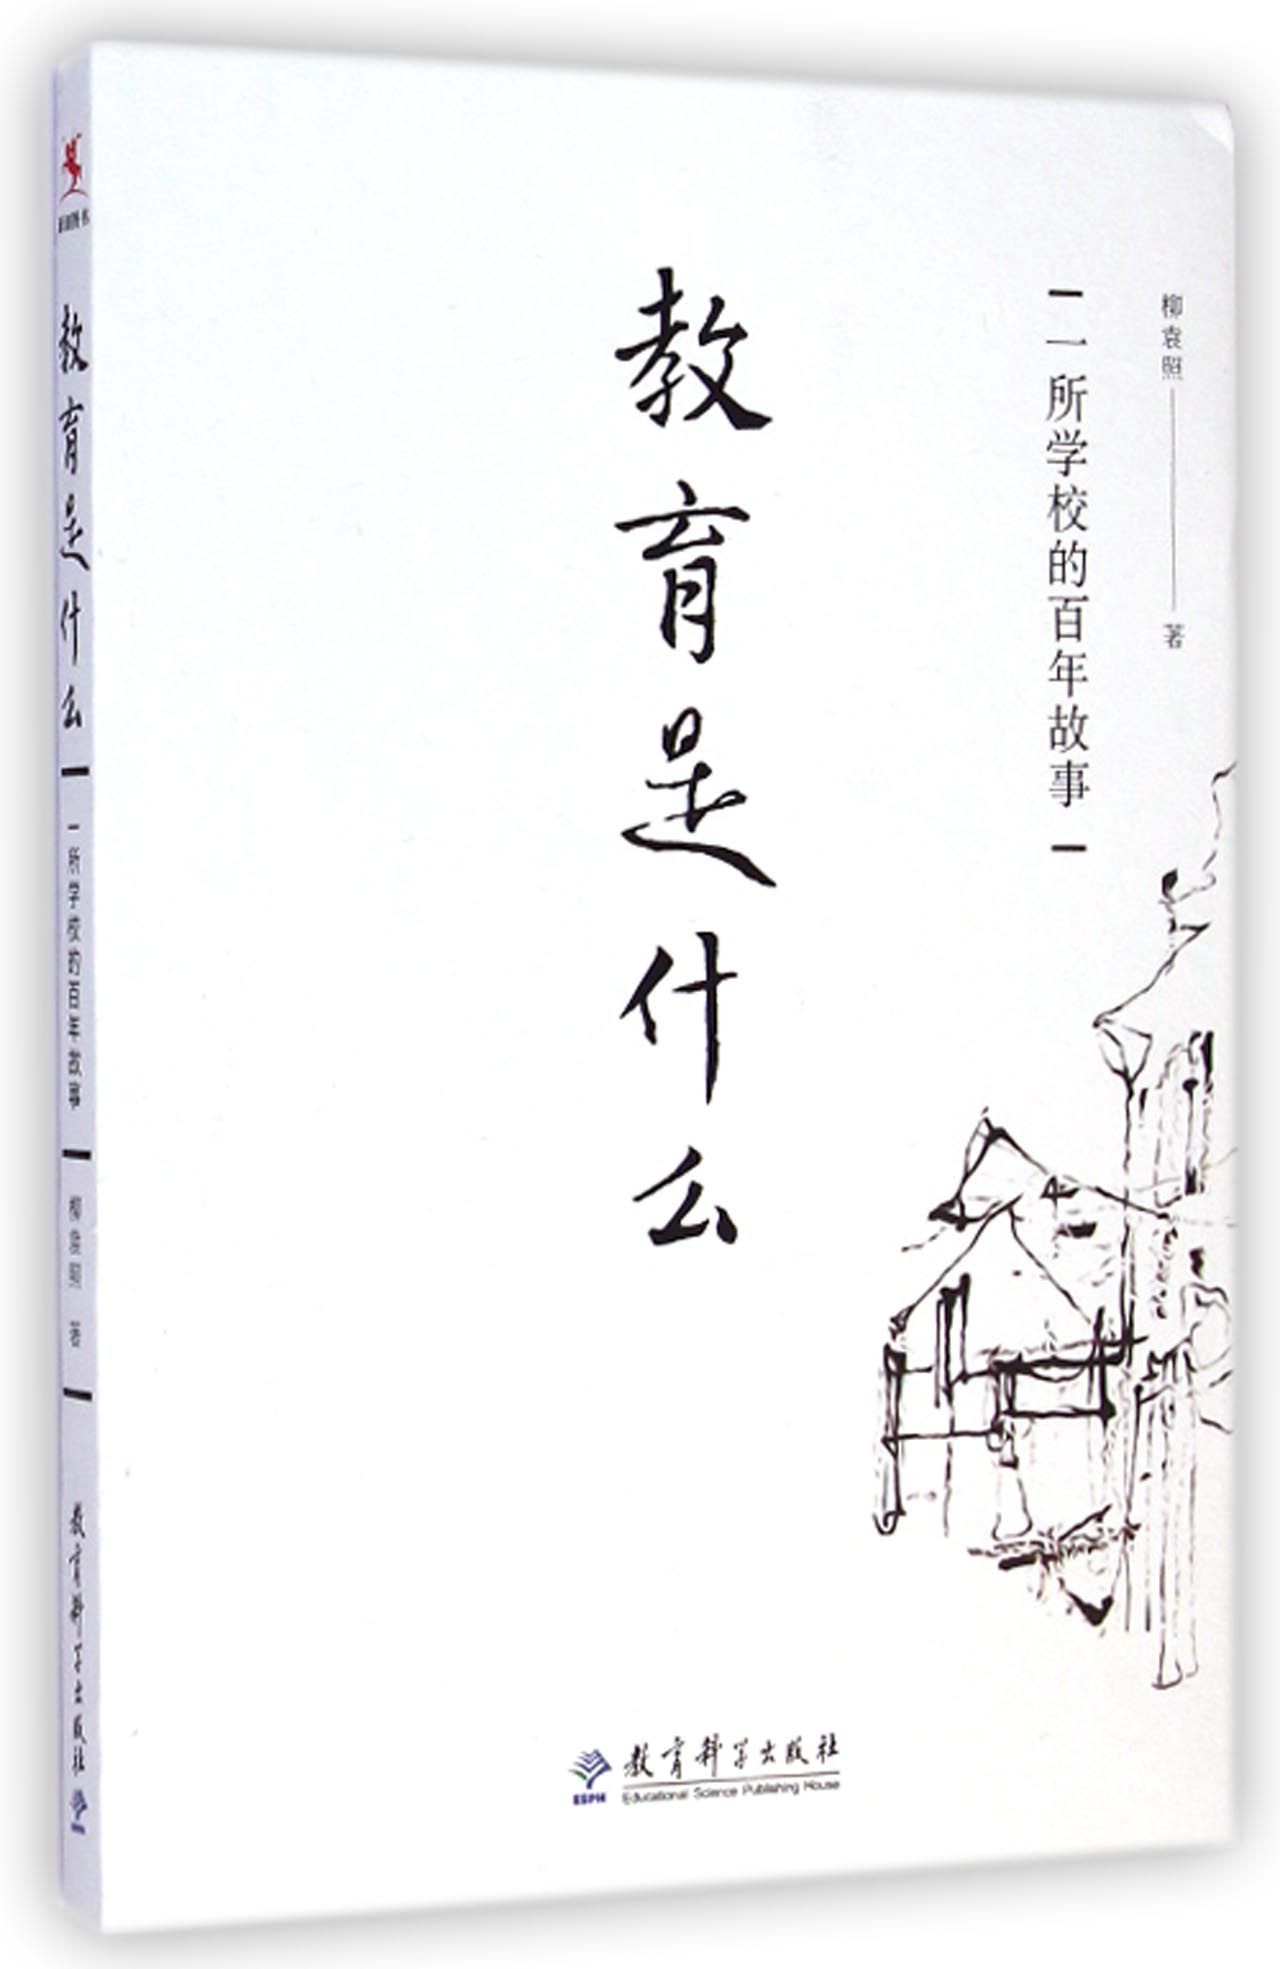 柳袁照 著
一所学校的百年故事
教育是什么
教育科学出版社
Educational Science Publishing House
ESPH
教育是什么
一所学校的百年故事
柳袁照 著
教育科学出版社